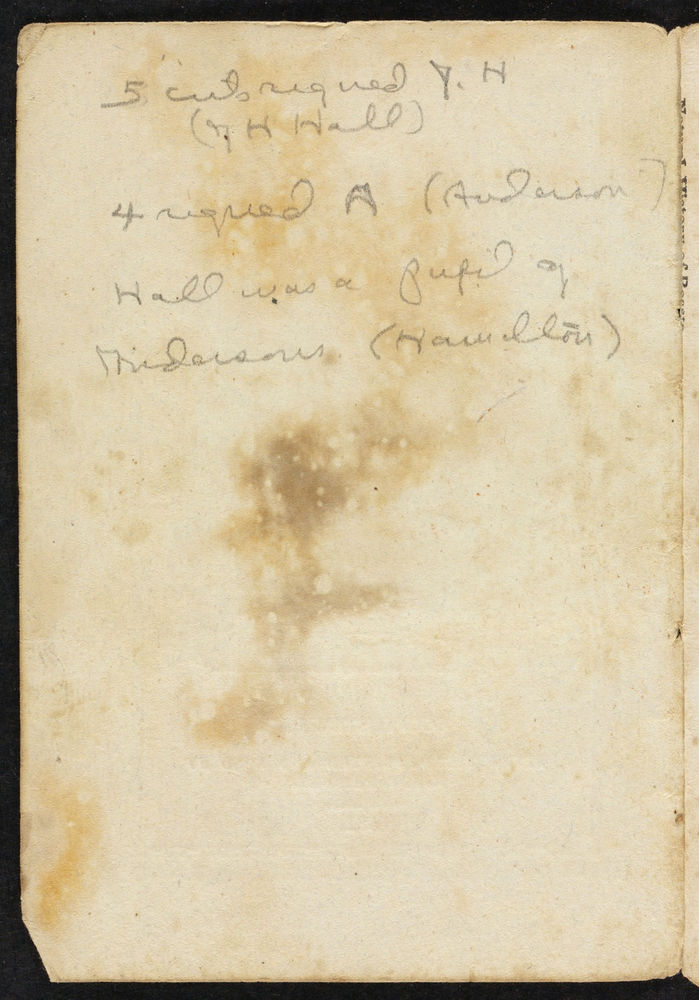 5 cuts signed Y. H
(Y H Hall)
4 signed A (Anderson)
Hall was a pupil of
Andersons (Hamilton)